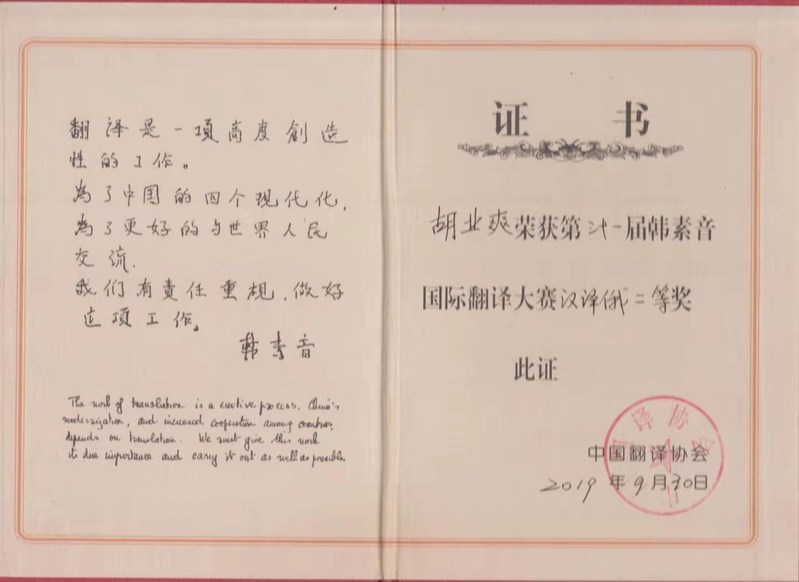 翻译是一項高度創造
性的工作。
為了中国的四个现代化,
為了更好的与世界人民
交流.
我们有責任重視,做好
这项工作。
韩素音
The work of translation is a creative process. China's
modernization, and increased cooperation among countries,
depends on translation. We must give this work
its due importance and carry it out as well as possible.
证 书
胡业爽荣获第卅一届韩素音
国际翻译大赛汉译俄二等奖
此证
中国翻译协会
2019年9月30日